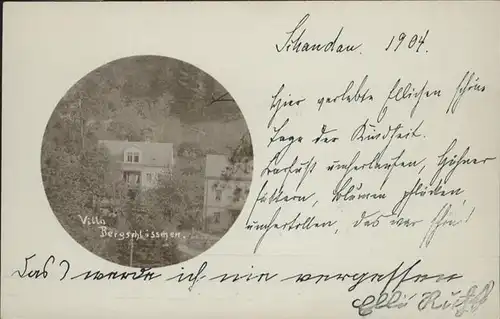 Schandau. 1904.
Hier verlebte Ellichen schöne
Tage der Kindheit.
Barfuß umherlaufen, Hühner
füttern, Blumen pflücken,
umhertollen, das war schön!
Villa
Bergschlösschen.
Das) werde ich nie vergessen
Elli